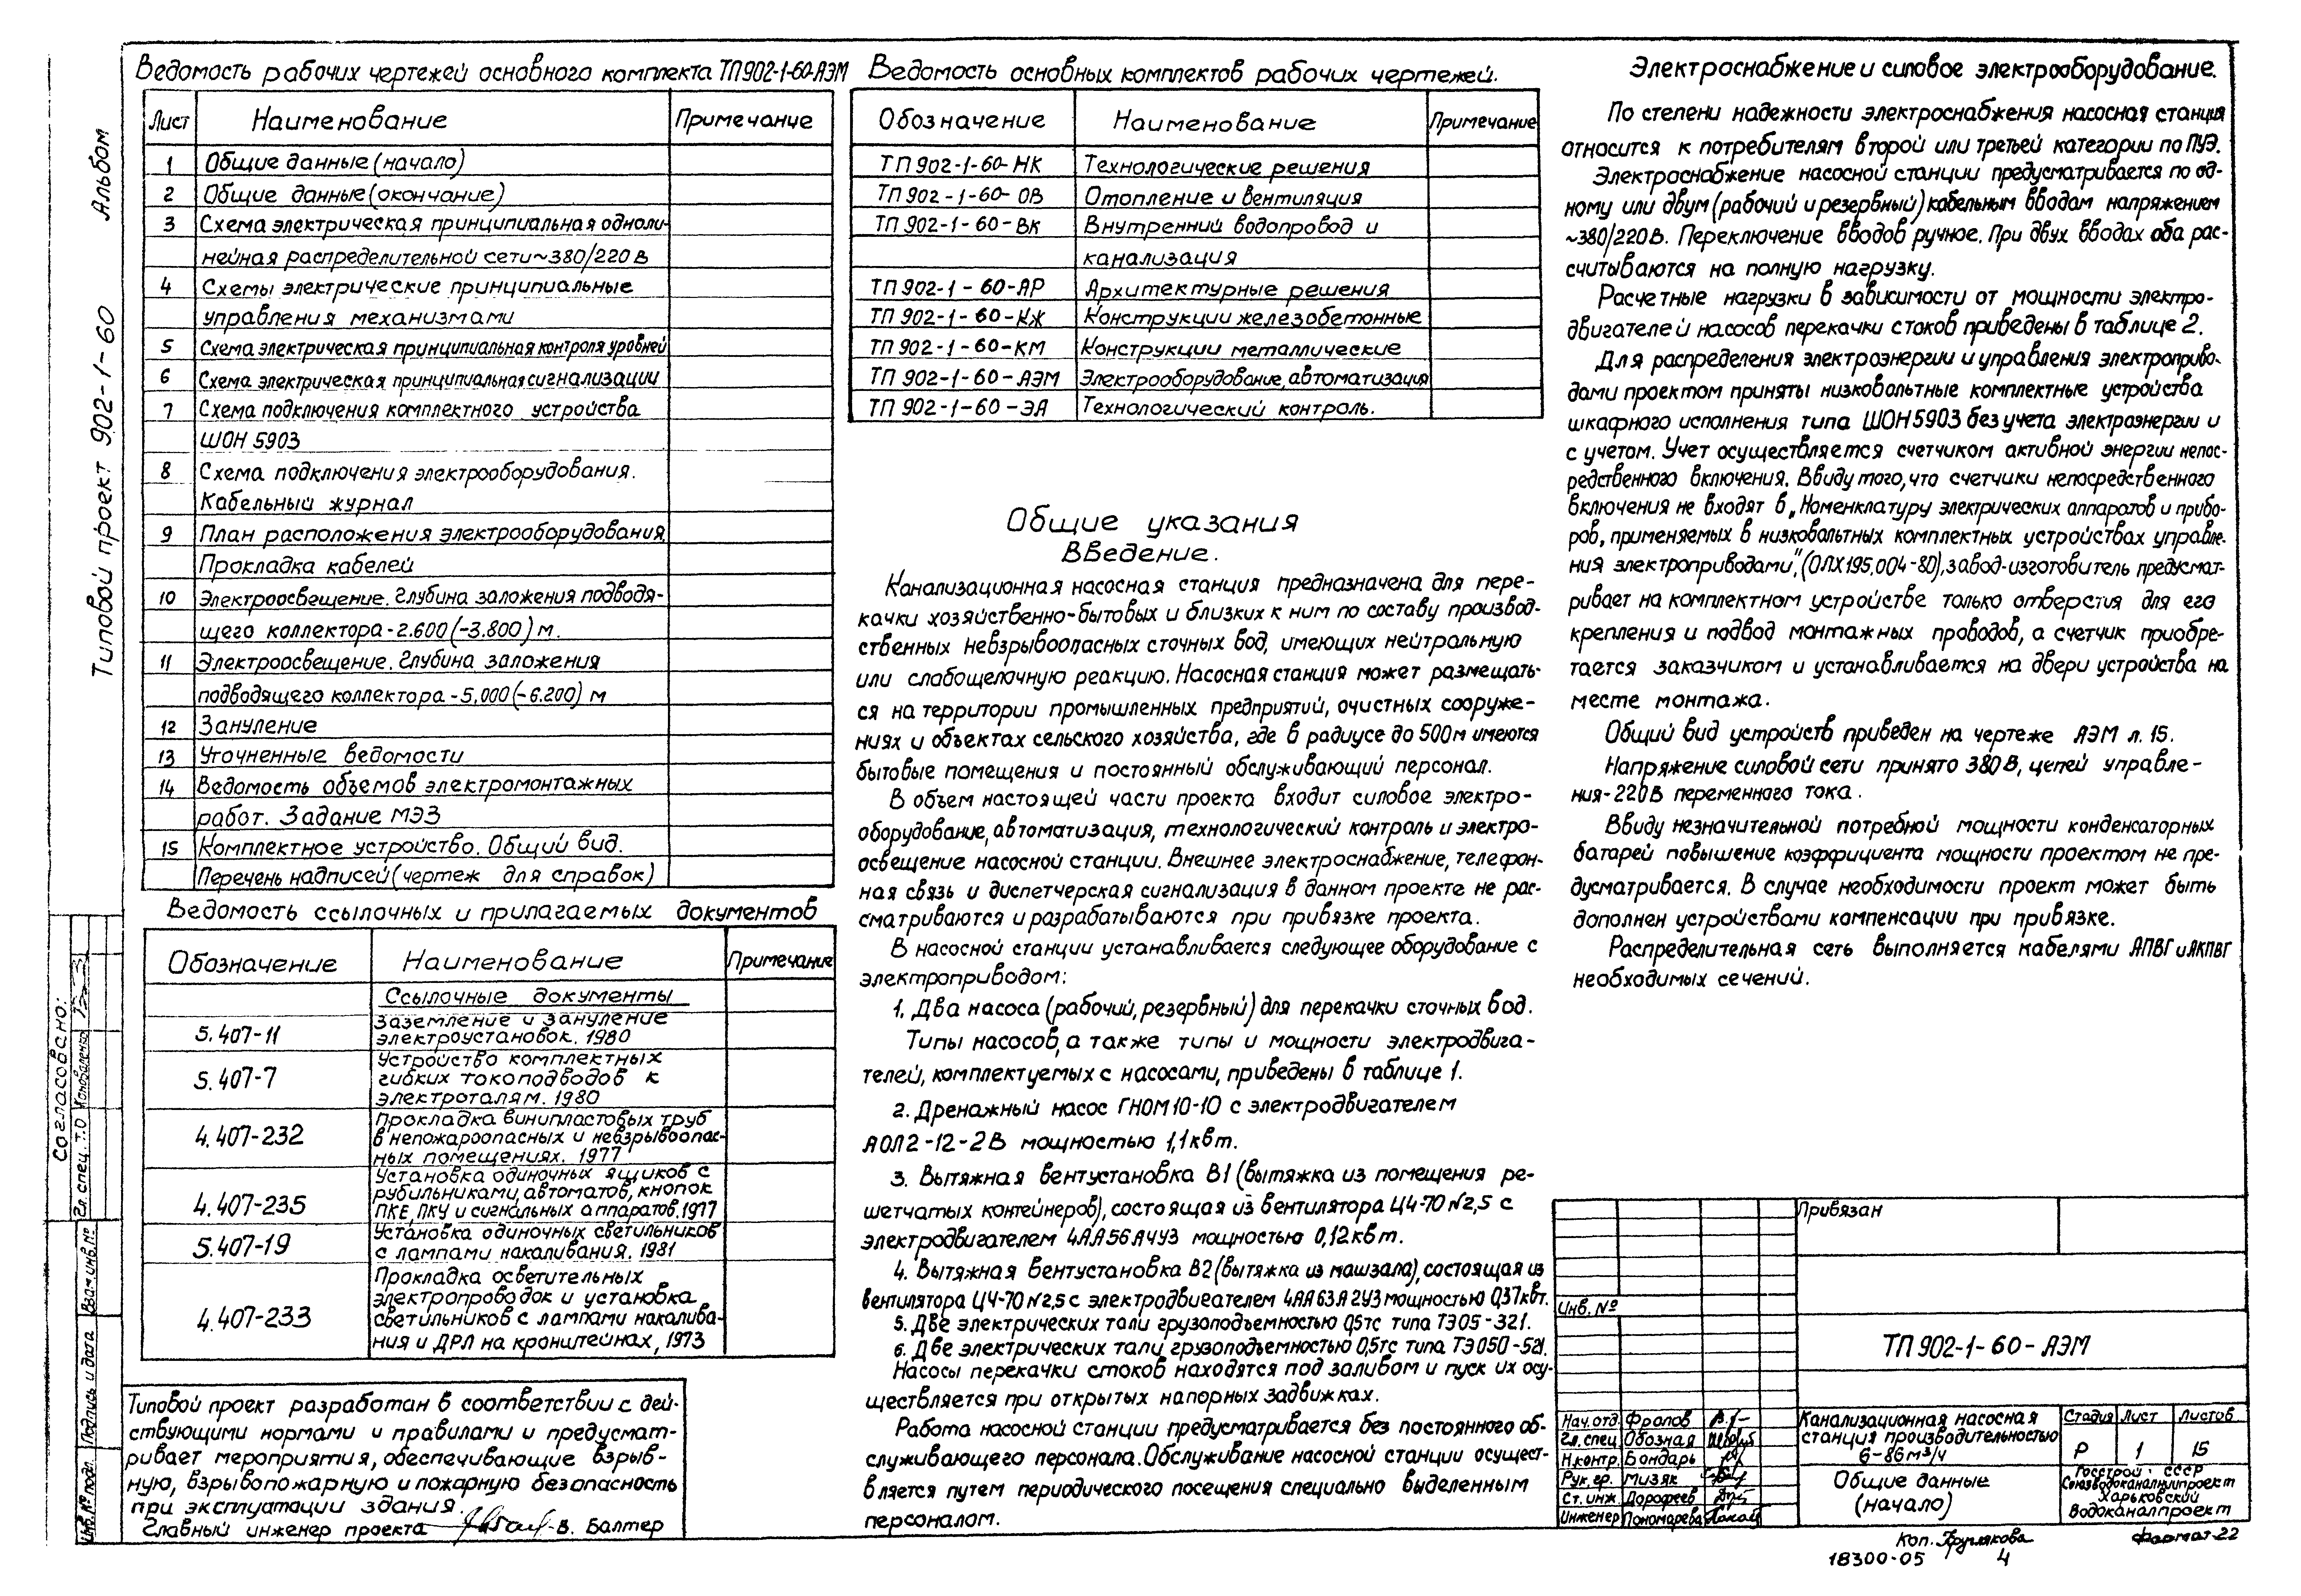 Альбом
Типовой проект 902-1-60
Ведомость рабочих чертежей основного комплекта ТП902-1-60-АЭМ
Лист Наименование Примечание
1 Общие данные (начало)
2 Общие данные (окончание)
3 Схема электрическая принципиальная одноли-
нейная распределительной сети ~380/220 В
4 Схемы электрические принципиальные
управления механизмами
5 Схема электрическая принципиальная контроля уровней
6 Схема электрическая принципиальная сигнализации
7 Схема подключения комплектного устройства
ШОН 5903
8 Схема подключения электрооборудования.
Кабельный журнал
9 План расположения электрооборудования.
Прокладка кабелей
10 Электроосвещение. Глубина заложения подводя-
щего коллектора-2.600 (-3.800) м.
11 Электроосвещение. Глубина заложения
подводящего коллектора-5,000 (-6.200) м
12 Зануление
13 Уточненные ведомости
14 Ведомость объемов электромонтажных
работ. Задание МЭЗ
15 Комплектное устройство. Общий вид.
Перечень надписей (чертеж для справок)
Ведомость ссылочных и прилагаемых документов
Обозначение Наименование Примечание
Ссылочные документы
5.407-11 Заземление и зануление
электроустановок. 1980
5.407-7 Устройство комплектных
гибких токоподводов к
электроталям. 1980
4.407-232 Прокладка винипластовых труб
в непожароопасных и невзрывоопас-
ных помещениях. 1977
4.407-235 Установка одиночных ящиков с
рубильниками, автоматов, кнопок
ПКЕ, ПКУ и сигнальных аппаратов. 1977
5.407-19 Установка одиночных светильников
с лампами накаливания. 1981
4.407-233 Прокладка осветительных
электропроводок и установка
светильников с лампами накалива-
ния и ДРЛ на кронштейнах, 1973
Типовой проект разработан в соответствии с дей-
ствующими нормами и правилами и предусмат-
ривает мероприятия, обеспечивающие взрыв-
ную, взрывопожарную и пожарную безопасность
при эксплуатации здания.
Главный инженер проекта В. Балтер
Согласовано:
Гл. спец. т.о Коноваленко
Взам. инв. №
Подпись и дата
Инв. № подл.
Ведомость основных комплектов рабочих чертежей.
Обозначение Наименование Примечание
ТП 902-1-60-НК Технологические решения
ТП 902-1-60-ОВ Отопление и вентиляция
ТП 902-1-60-ВК Внутренний водопровод и
канализация
ТП 902-1-60-АР Архитектурные решения
ТП 902-1-60-КЖ Конструкции железобетонные
ТП 902-1-60-КМ Конструкции металлические
ТП 902-1-60-АЭМ Электрооборудование, автоматизация
ТП 902-1-60-ЭА Технологический контроль.
Общие указания
Введение.
Канализационная насосная станция предназначена для пере-
качки хозяйственно-бытовых и близких к ним по составу производ-
ственных невзрывоопасных сточных вод, имеющих нейтральную
или слабощелочную реакцию. Насосная станция может размещать-
ся на территории промышленных предприятий, очистных сооруже-
ниях и объектах сельского хозяйства, где в радиусе до 500м имеются
бытовые помещения и постоянный обслуживающий персонал.
В объем настоящей части проекта входит силовое электро-
оборудование, автоматизация, технологический контроль и электро-
освещение насосной станции. Внешнее электроснабжение, телефон-
ная связь и диспетчерская сигнализация в данном проекте не рас-
сматриваются и разрабатываются при привязке проекта.
В насосной станции устанавливается следующее оборудование с
электроприводом:
1. Два насоса (рабочий, резервный) для перекачки сточных вод.
Типы насосов, а также типы и мощности электродвига-
телей, комплектуемых с насосами, приведены в таблице 1.
2. Дренажный насос ГНОМ 10-10 с электродвигателем
АОЛ2-12-2В мощностью 1,1квт.
3. Вытяжная вентустановка В1 (вытяжка из помещения ре-
шетчатых контейнеров), состоящая из вентилятора Ц4-70 №2,5 с
электродвигателем 4АА56А4У3 мощностью 0,12квт.
4. Вытяжная вентустановка В2 (вытяжка из машзала), состоящая из
вентилятора Ц4-70 №2,5 с электродвигателем 4АА63А2У3 мощностью 0,37квт.
5. Две электрических тали грузоподъемностью 0,5тс типа ТЭ05-321.
6. Две электрических тали грузоподъемностью 0,5тс типа ТЭ050-521.
Насосы перекачки стоков находятся под заливом и пуск их осу-
ществляется при открытых напорных задвижках.
Работа насосной станции предусматривается без постоянного об-
служивающего персонала. Обслуживание насосной станции осущест-
вляется путем периодического посещения специально выделенным
персоналом.
Электроснабжение и силовое электрооборудование.
По степени надежности электроснабжения насосная станция
относится к потребителям второй или третьей категории по ПУЭ.
Электроснабжение насосной станции предусматривается по од-
ному или двум (рабочий и резервный) кабельным вводам напряжением
~380/220В. Переключение вводов ручное. При двух вводах оба рас-
считываются на полную нагрузку.
Расчетные нагрузки в зависимости от мощности электро-
двигателей насосов перекачки стоков приведены в таблице 2.
Для распределения электроэнергии и управления электроприво-
дами проектом приняты низковольтные комплектные устройства
шкафного исполнения типа ШОН5903 без учета электроэнергии и
с учетом. Учет осуществляется счетчиком активной энергии непос-
редственного включения. Ввиду того, что счетчики непосредственного
включения не входят в „Номенклатуру электрических аппаратов и прибо-
ров, применяемых в низковольтных комплектных устройствах управле-
ния электроприводами," (ОЛХ195.004-80), завод-изготовитель предусмат-
ривает на комплектном устройстве только отверстия для его
крепления и подвод монтажных проводов, а счетчик приобре-
тается заказчиком и устанавливается на двери устройства на
месте монтажа.
Общий вид устройств приведен на чертеже АЭМ л. 15.
Напряжение силовой сети принято 380В, цепей управле-
ния-220В переменного тока.
Ввиду незначительной потребной мощности конденсаторных
батарей повышение коэффициента мощности проектом не пре-
дусматривается. В случае необходимости проект может быть
дополнен устройствами компенсации при привязке.
Распределительная сеть выполняется кабелями АПВГ и АКПВГ
необходимых сечений.
Привязан
Инв. №
ТП 902-1-60-АЭМ
Нач. отд. Фролов
Гл. спец. Обозная
Н.контр. Бондарь
Рук. гр. Мизяк
Ст. инж. Дорофеев
Инженер Пономарева
Канализационная насосная
станция производительностью
6-86м³/ч
Стадия Лист Листов
Р 1 15
Общие данные
(начало)
Госстрой СССР
Союзводоканалниипроект
Харьковский
Водоканалпроект
Коп. Формат 22
18300-05 4